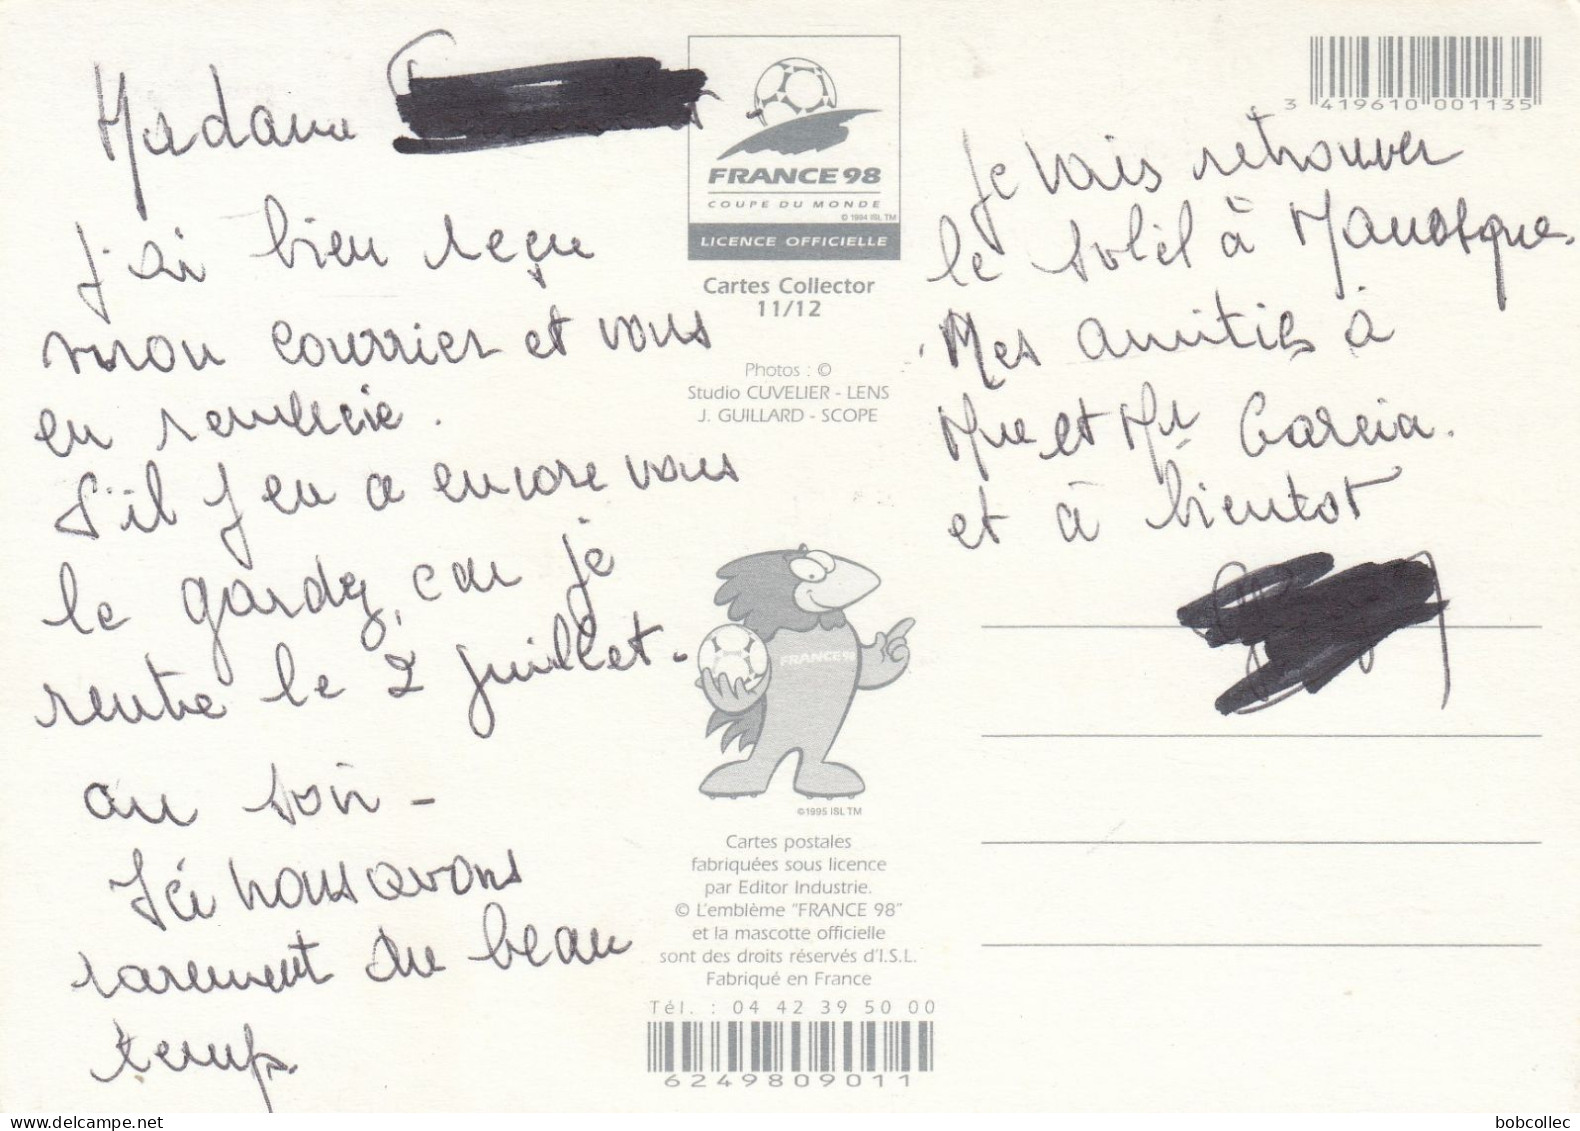 Madame
J'ai bien reçu
mon courrier et vous
en remercie.
S'il y en a encore vous
le gardez, car je
rentre le 2 juillet -
au soir -
Ici nous avons
rarement du beau
temps.
FRANCE 98
COUPE DU MONDE
© 1994 ISL TM
LICENCE OFFICIELLE
Cartes Collector
11/12
Photos : ©
Studio CUVELIER - LENS
J. GUILLARD - SCOPE
FRANCE 98
©1995 ISL TM
Cartes postales
fabriquées sous licence
par Editor Industrie.
© L'emblème "FRANCE 98"
et la mascotte officielle
sont des droits réservés d'I.S.L.
Fabriqué en France
Tél. : 04 42 39 50 00
6249809011
3 419610 001135
Je vais retrouver
le soleil à Manosque.
Mes amitiés à
Mme et Mr Garcia.
et à bientot
bobcollec